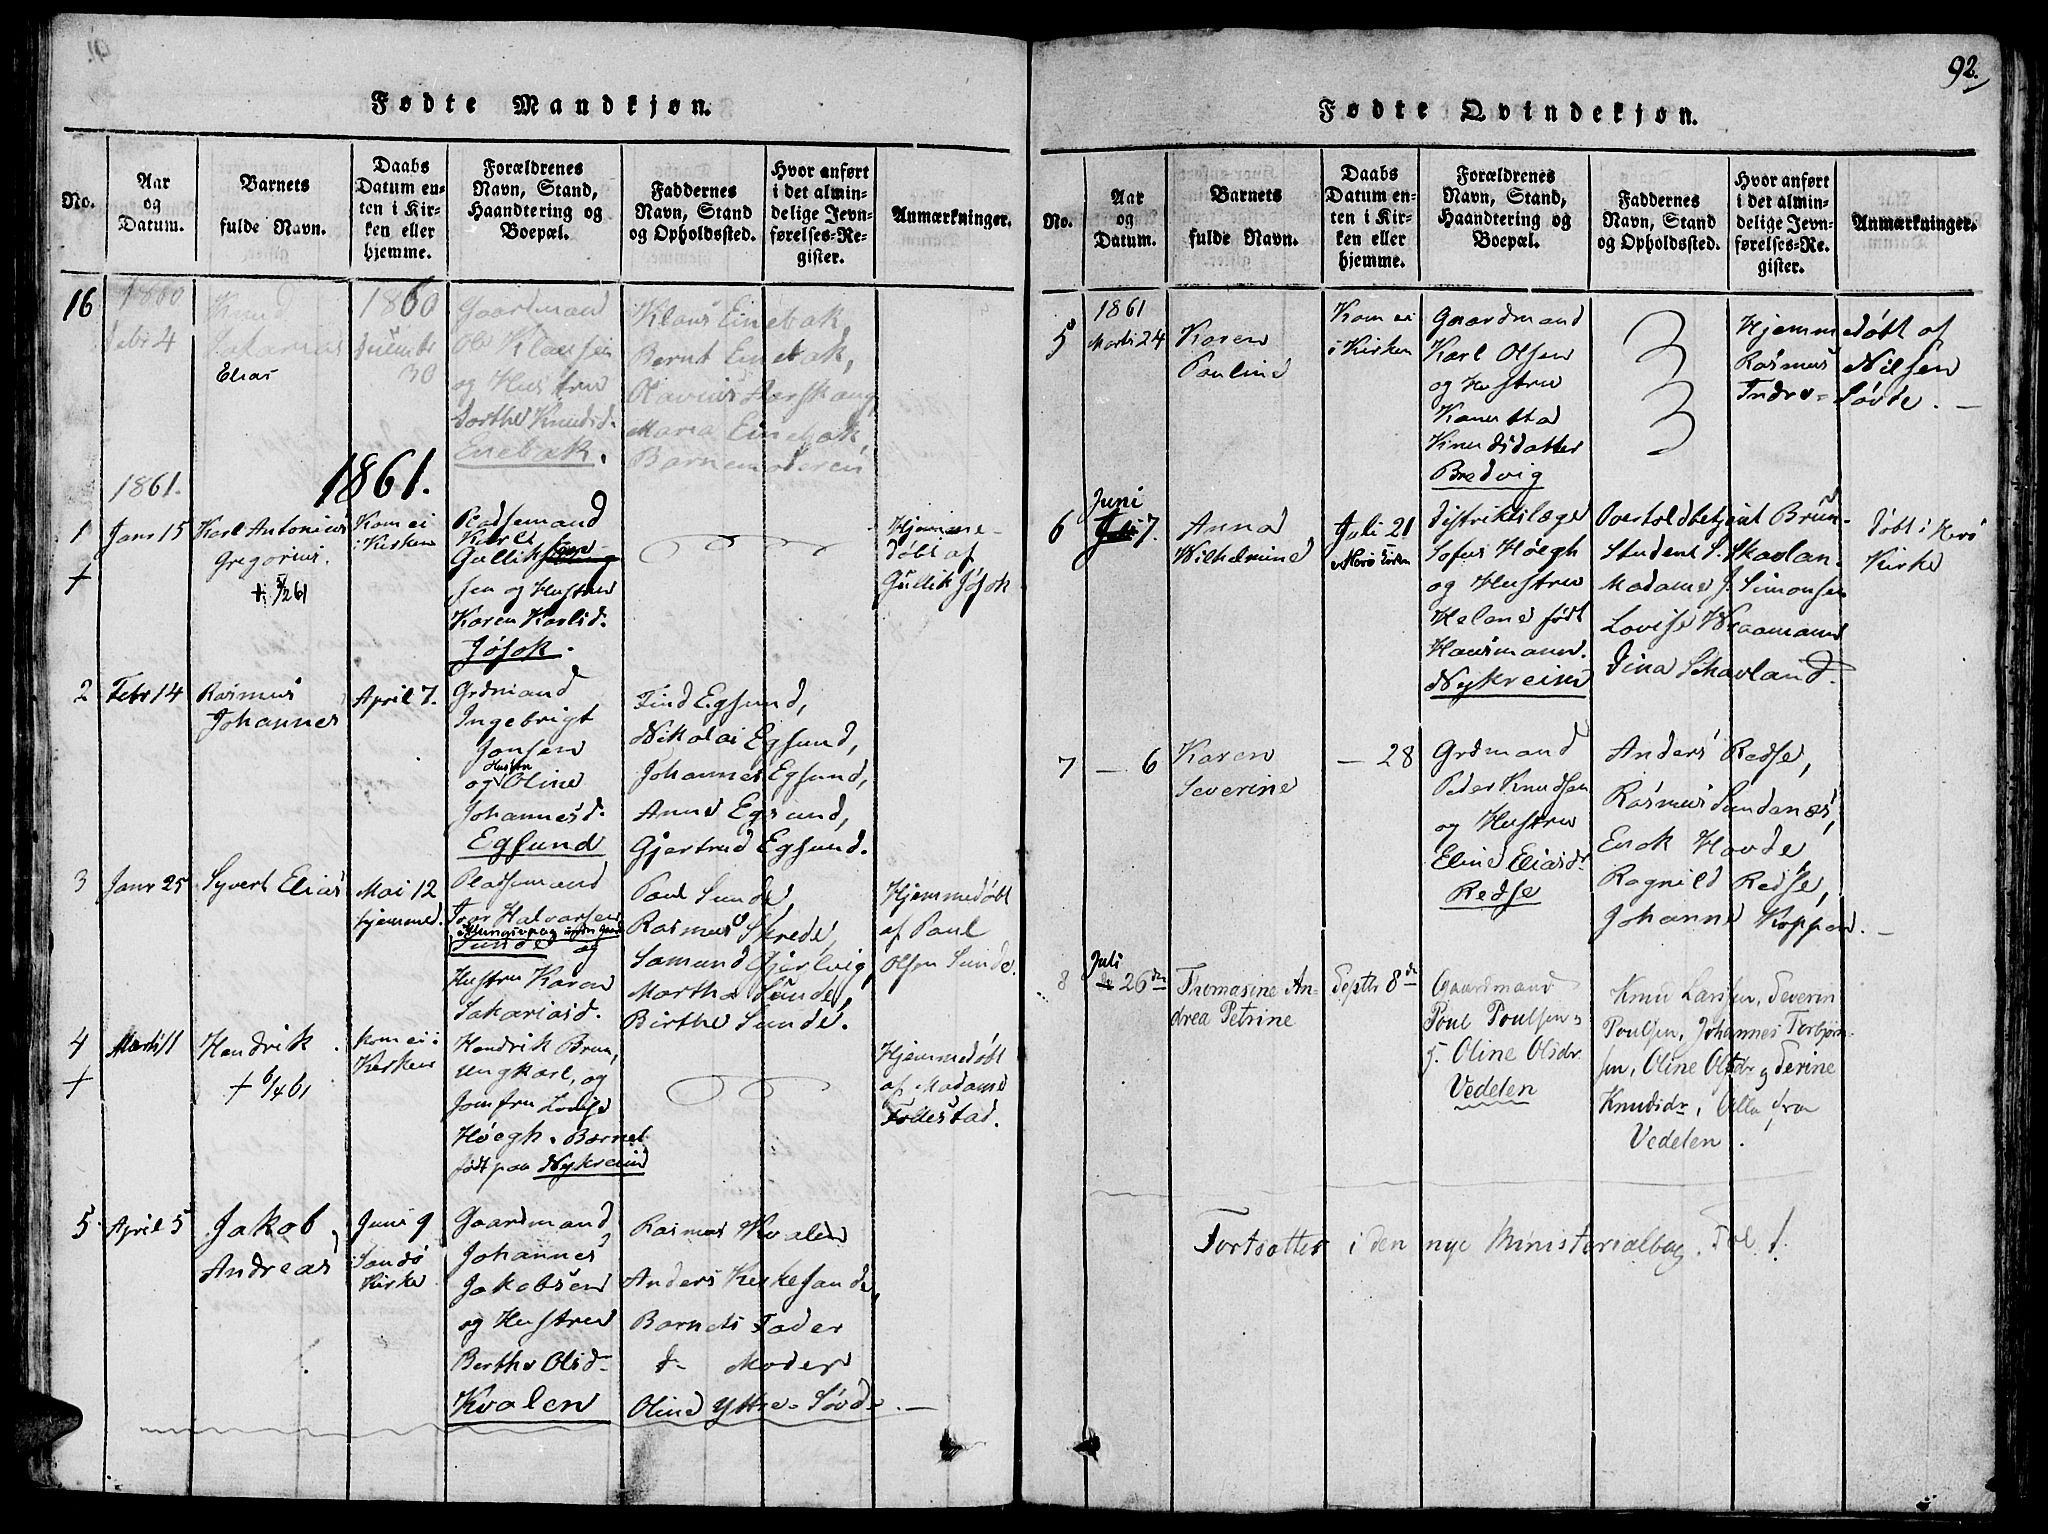 92.
Fødte Mandkjøn.
No.
Aar
og
Datum.
Barnets
fulde Navn.
Daabs
Datum en-
ten i Kir-
ken eller
hjemme.
Forældrenes
Navn, Stand,
Haandtering og
Boepæl.
Faddernes
Navn, Stand
og Opholdssted.
Hvor anført
i det almin-
delige Jevn-
førelses-Re-
gister.
Anmærkninger.
16
1860
Febr 4
Knud
Sakarias
Elias
1860
Decembr
30
Gaardmand
Ole Klausen
og Hustru
Dorthe Knudsd.
Enebak.
Klaus Einebak,
Bernt Einebak,
Olavius Aarskaug
Maria Einebak,
Barnemoderen
1861.
1861.
1
+
Janr 15
Karl Antonius
Gregorius.
+ 5/2 61
Kom ei
i Kirken
Pladsemand
Karl
Gullik
sen og Hustru
Karen Karlsd.
Jøsok.
Hjemme-
døbt af
Gullik Jøsok
2
Febr 14
Rasmus
Johannes
April 7.
Grdmand
Ingebrigt
Jonsen
Hustru
og Oline
Johannesd.
Egsund
Find Egsund,
Nikolai Egsund,
Johannes Egsund,
Anne Egsund,
Gjertrud Egsund.
3
Janr 25
Syvert Elias
Mai 12
hjemme
Pladsemand
Iver Halvorsen
Sunde og
Hustru Karen
Sakariasd.
Paul Sunde,
Rasmus Skrede,
Samund Gjerlvig,
Martha Sunde,
Birthe Sunde.
Hjemmedøbt
af Paul
Olsen Sunde.
4
+
Marti 11
Hendrik.
+ 6/4 61
Kom ei i
Kirken
Hendrik Brun,
ungkarl, og
Jomfru Lovise
Høegh. Barnet
født paa Nykreim
Hjemmedøbt
af Madame
Follestad.
5
April 5
Jakob
Andreas
Juni 9
Sandø
Kirke
Gaardmand
Johannes
Jakobsen
og Hustru
Berthe Olsd.
Kvalen
Rasmus Kvalen
Anders Kirkesande,
Barnets Fader
d- Moder
Oline Yttre-Søvde. —
Fødte Qvindekjøn.
No.
Aar
og
Datum.
Barnets
fulde Navn.
Daabs
Datum en-
ten i Kir-
ken eller
hjemme.
Forældrenes
Navn, Stand,
Haandtering og
Boepæl.
Faddernes
Navn, Stand
og Opholdssted.
Hvor anført
i det almin-
delige Jevn-
førelses-Re-
gister.
Anmærkninger.
5
1861
Marti 24
Karen
Pauline
Kom ei
i Kirken
Gaardmand
Karl Olsen
og Hustru
Knudsdatter
Bredvig
Hjemmedøbt af
Rasmus Nilsen
Indre-Søvde. —
6
Juni
7.
Anna
Wilhelmine
Juli 21
i Herø Kirke
Distriktslæge
Sofus Høegh
og Hustru
Helene født
Hausmann.
Nykreim
Overtoldbetjent Brun-
Student S. Skavlan.
Madame J. Simonsen
Lovise
Dina Schavland.
Døbt i Herø
Kirke
7
— 6
Karen
Severine
— 28
Grdmand
Peder Knudsen
og Hustru
Eline Eliasdr
Redse
Anders Redse,
Rasmus Sandenæs,
Enok Hovde
Ragnild Redse,
Johanne Koppen. —
8
Juli
26de
Thomasine An-
drea Petrine
Septbr 8de
Gaardmand
Poul Poulsen og
H. Oline Olsdr
Vedelen
Knud Larsen, Severin
Poulsen, Johannes Torbjørn-
sen, Oline Olsdr og Serine
Knudsdr, Alle fra
Vedelen.
Fortsættes i den nye Ministerialbog. Fol 1.